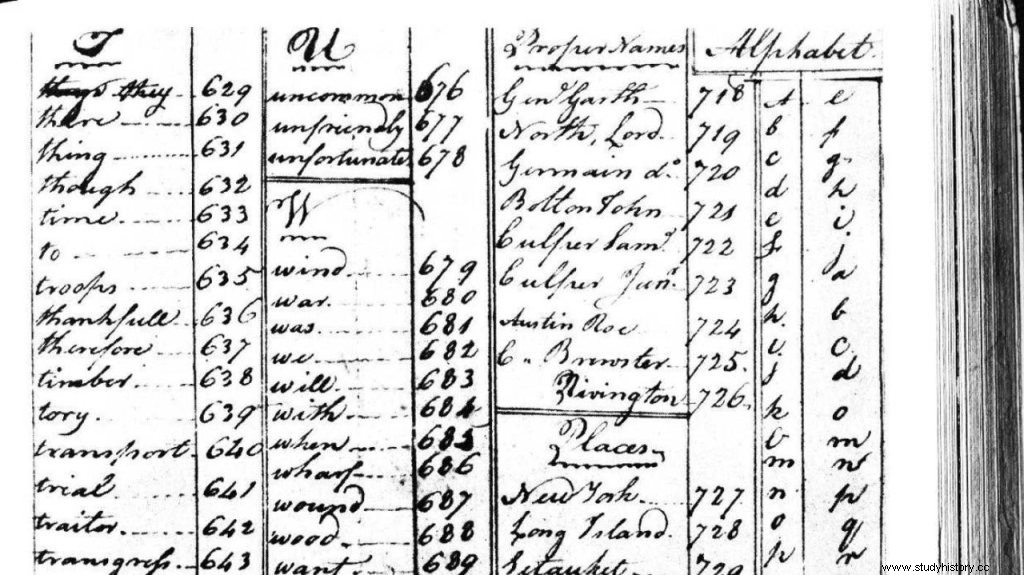 T
they 629
there 630
thing 631
though 632
time 633
to 634
troops 635
thankfull 636
therefore 637
timber 638
tory 639
transport 640
trial 641
traitor 642
transgress 643
U
uncommon 676
unfriendly 677
unfortunate 678
W
wind 679
war 680
was 681
we 682
will 683
with 684
when 685
wharf 686
wound 687
wood 688
want 689
Proper Names
Genl. Garth 718
North, Lord 719
Germain do. 720
Bolton John 721
Culper Saml. 722
Culper Junr. 723
Austin Roe 724
C. Brewster 725
Rivington 726
Places
New York 727
Long Island 728
Setauket 729
Alphabet
a e
b f
c g
d h
e i
f j
g a
h b
i c
j d
k o
l m
m n
n p
o q
p r
www.studyhistory.cc